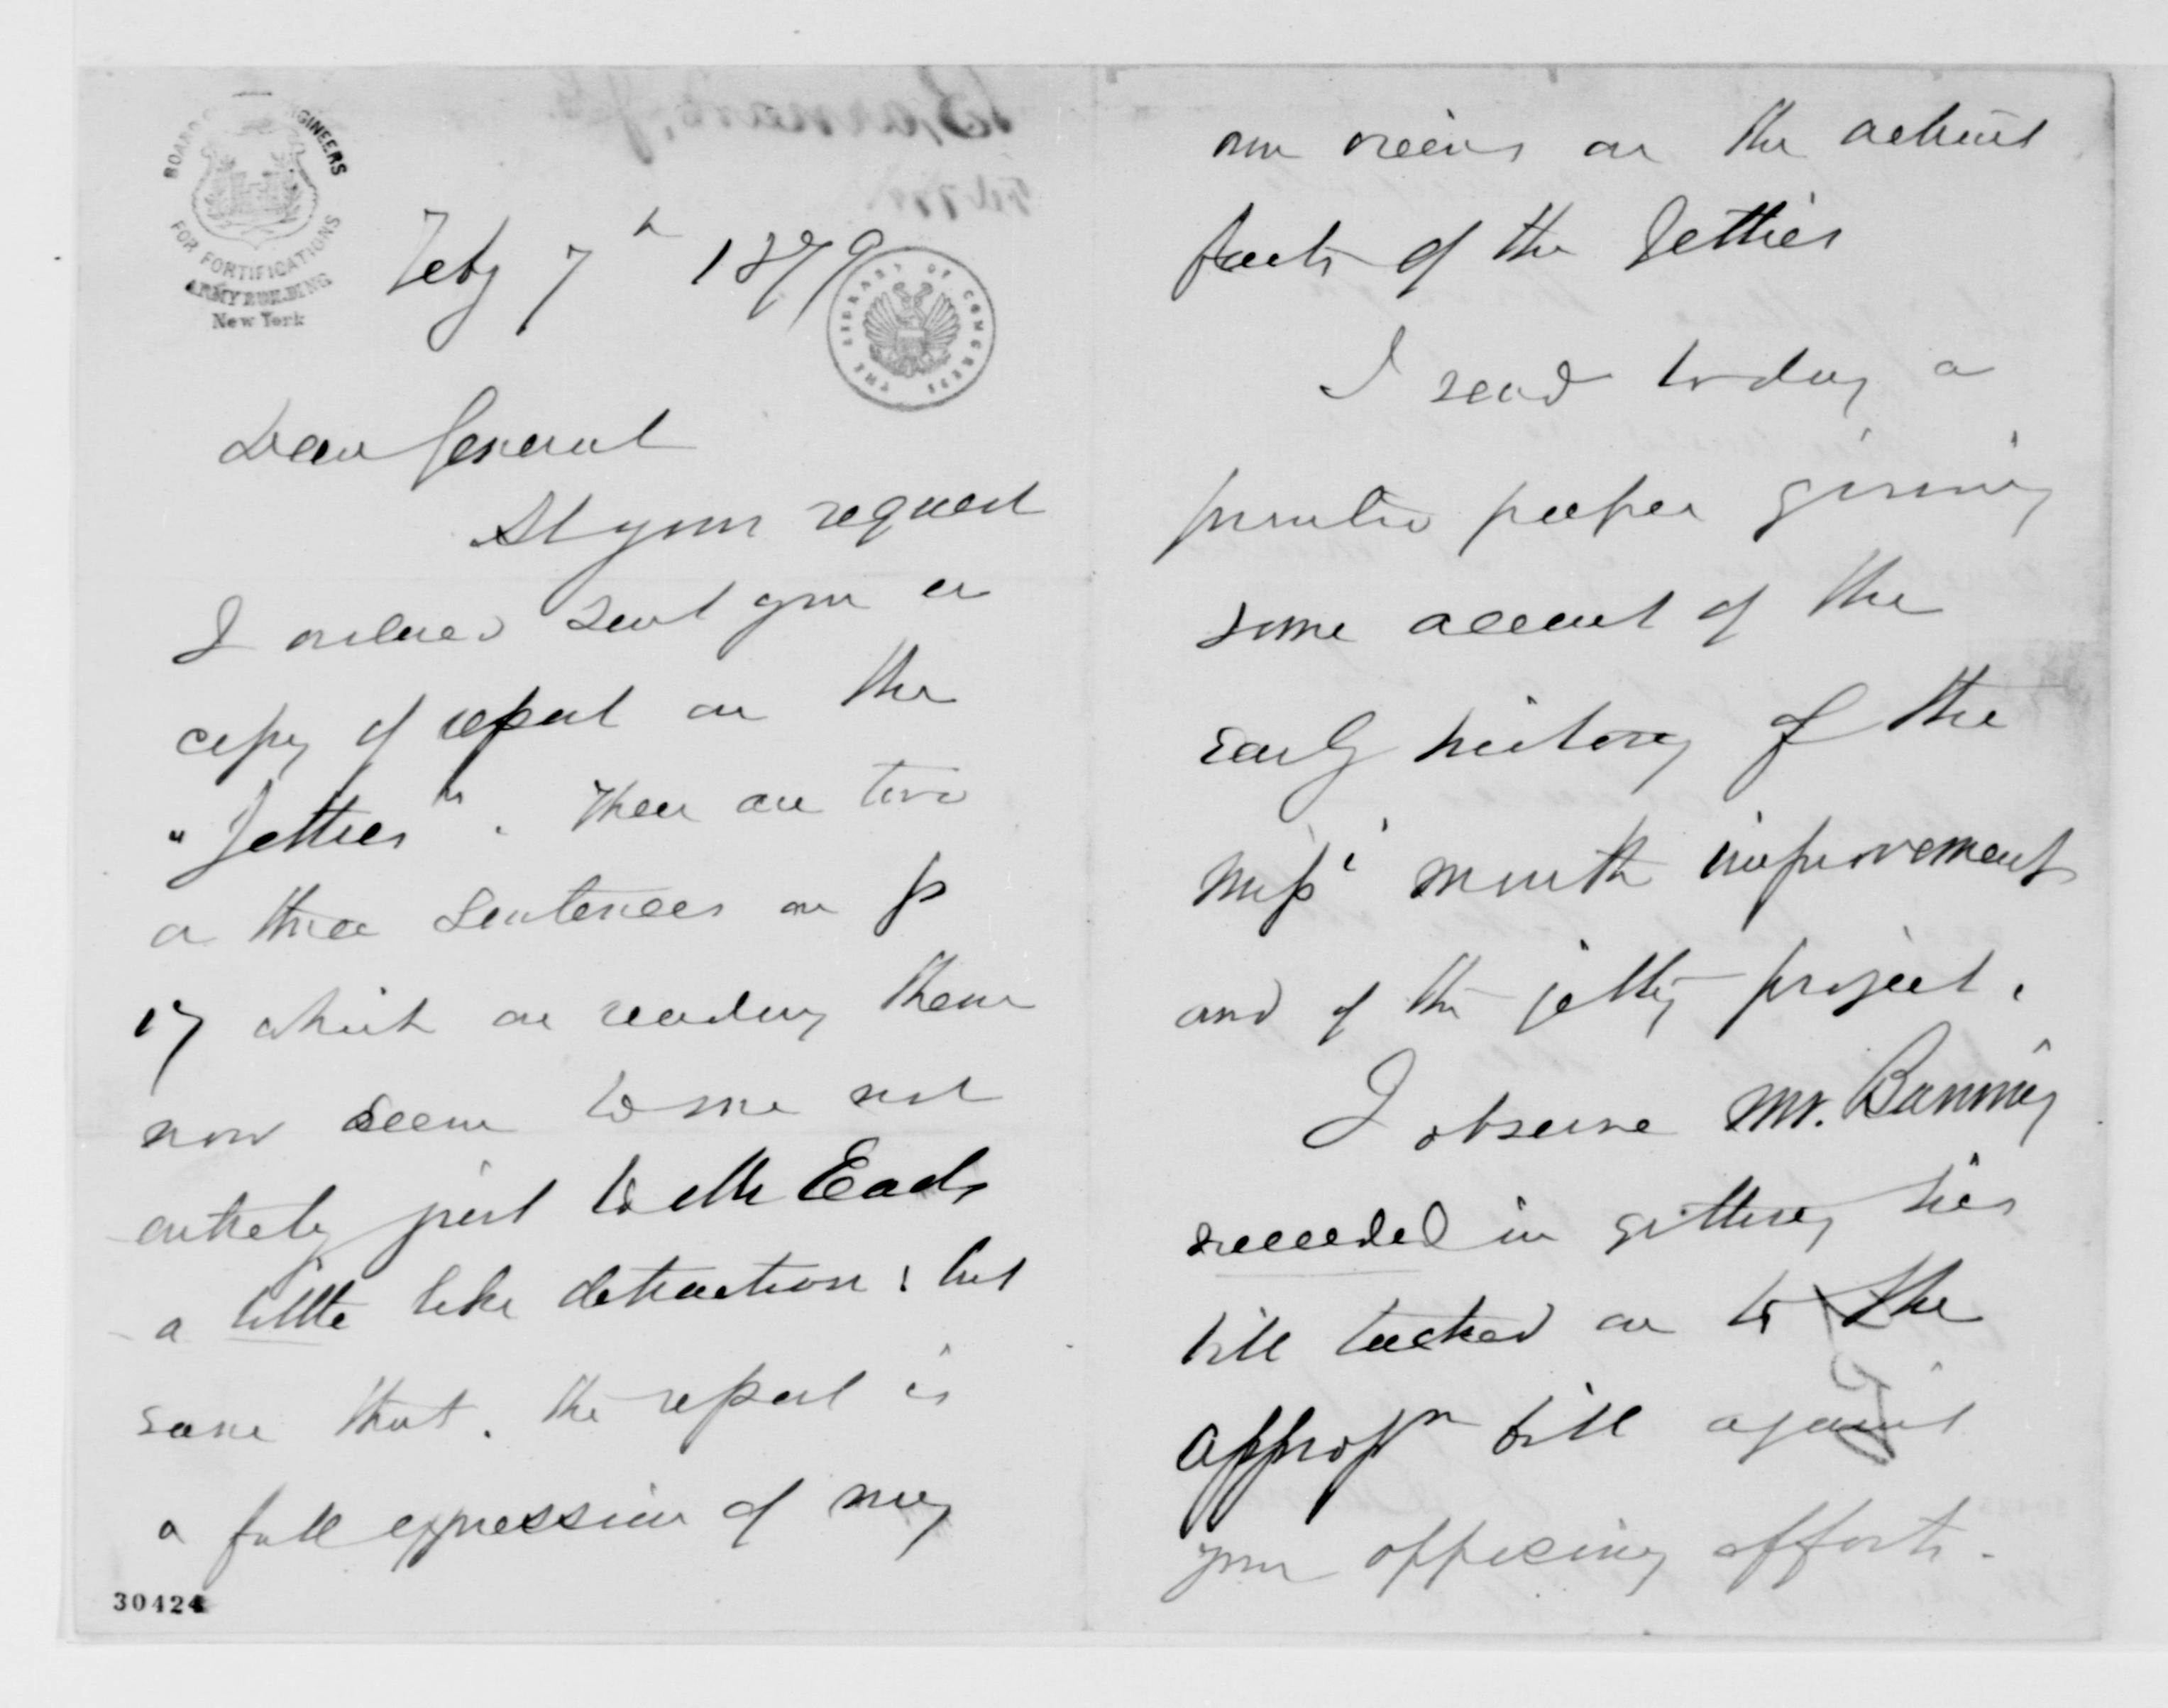 BOARD OF ENGINEERS
FOR FORTIFICATIONS
ARMY BUILDING
New York
Feby 7th 1879
THE LIBRARY OF CONGRESS
Dear General
At your request
I ordered sent you a
copy of report on the
"Jetties". There are two
or three sentences on p
17 which on reading them
now seem to me not
entirely just to Mr Eads
a little like detraction; but
save that. the report is
a full expression of my
30424
own views on the actual
facts of the Jetties
I send today a
printed paper giving
some account of the
early history of the
Missi mouth improvement
and of the jetty project.
I observe Mr. Banning
succeeded in getting his
bill tacked on to the
appropn bill against
your opposing efforts.